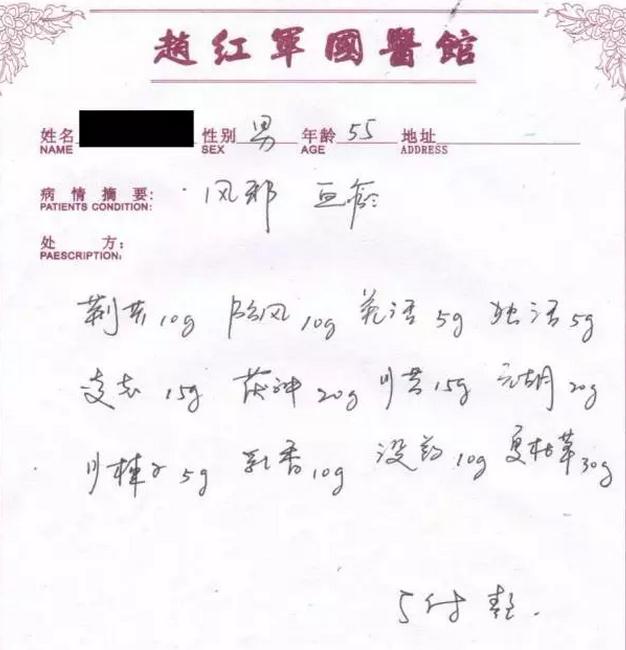 趙红軍國醫館
姓名 性别 男 年龄 55 地址
NAME SEX AGE ADDRESS
病情摘要: 风邪
PATIENTS CONDITION:
处方:
PAESCRIPTION:
荆芥10g 防风10g 羌活5g 独活5g
远志15g 茯神20g 川芎15g 元胡20g
川楝子5g 乳香10g 没药10g 夏枯草30g
5付